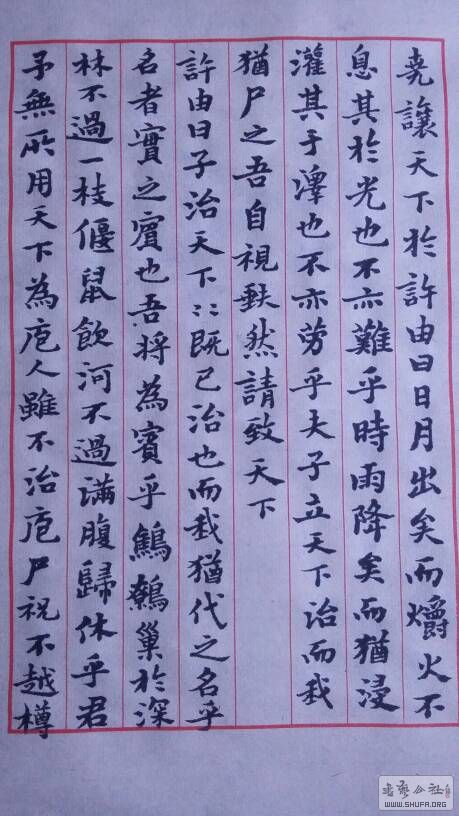 堯讓天下於許由曰日月出矣而爝火不
息其於光也不亦難乎時雨降矣而猶浸
灌其于澤也不亦勞乎夫子立天下治而我
猶尸之吾自視缺然請致天下
許由曰子治天下〻既已治也而我猶代之名乎
名者實之賓也吾將為賓乎鷦鷯巢於深
林不過一枝偃鼠飲河不過满腹歸休乎君
予無所用天下為庖人雖不治庖尸祝不越樽
WWW.SHUFA.ORG